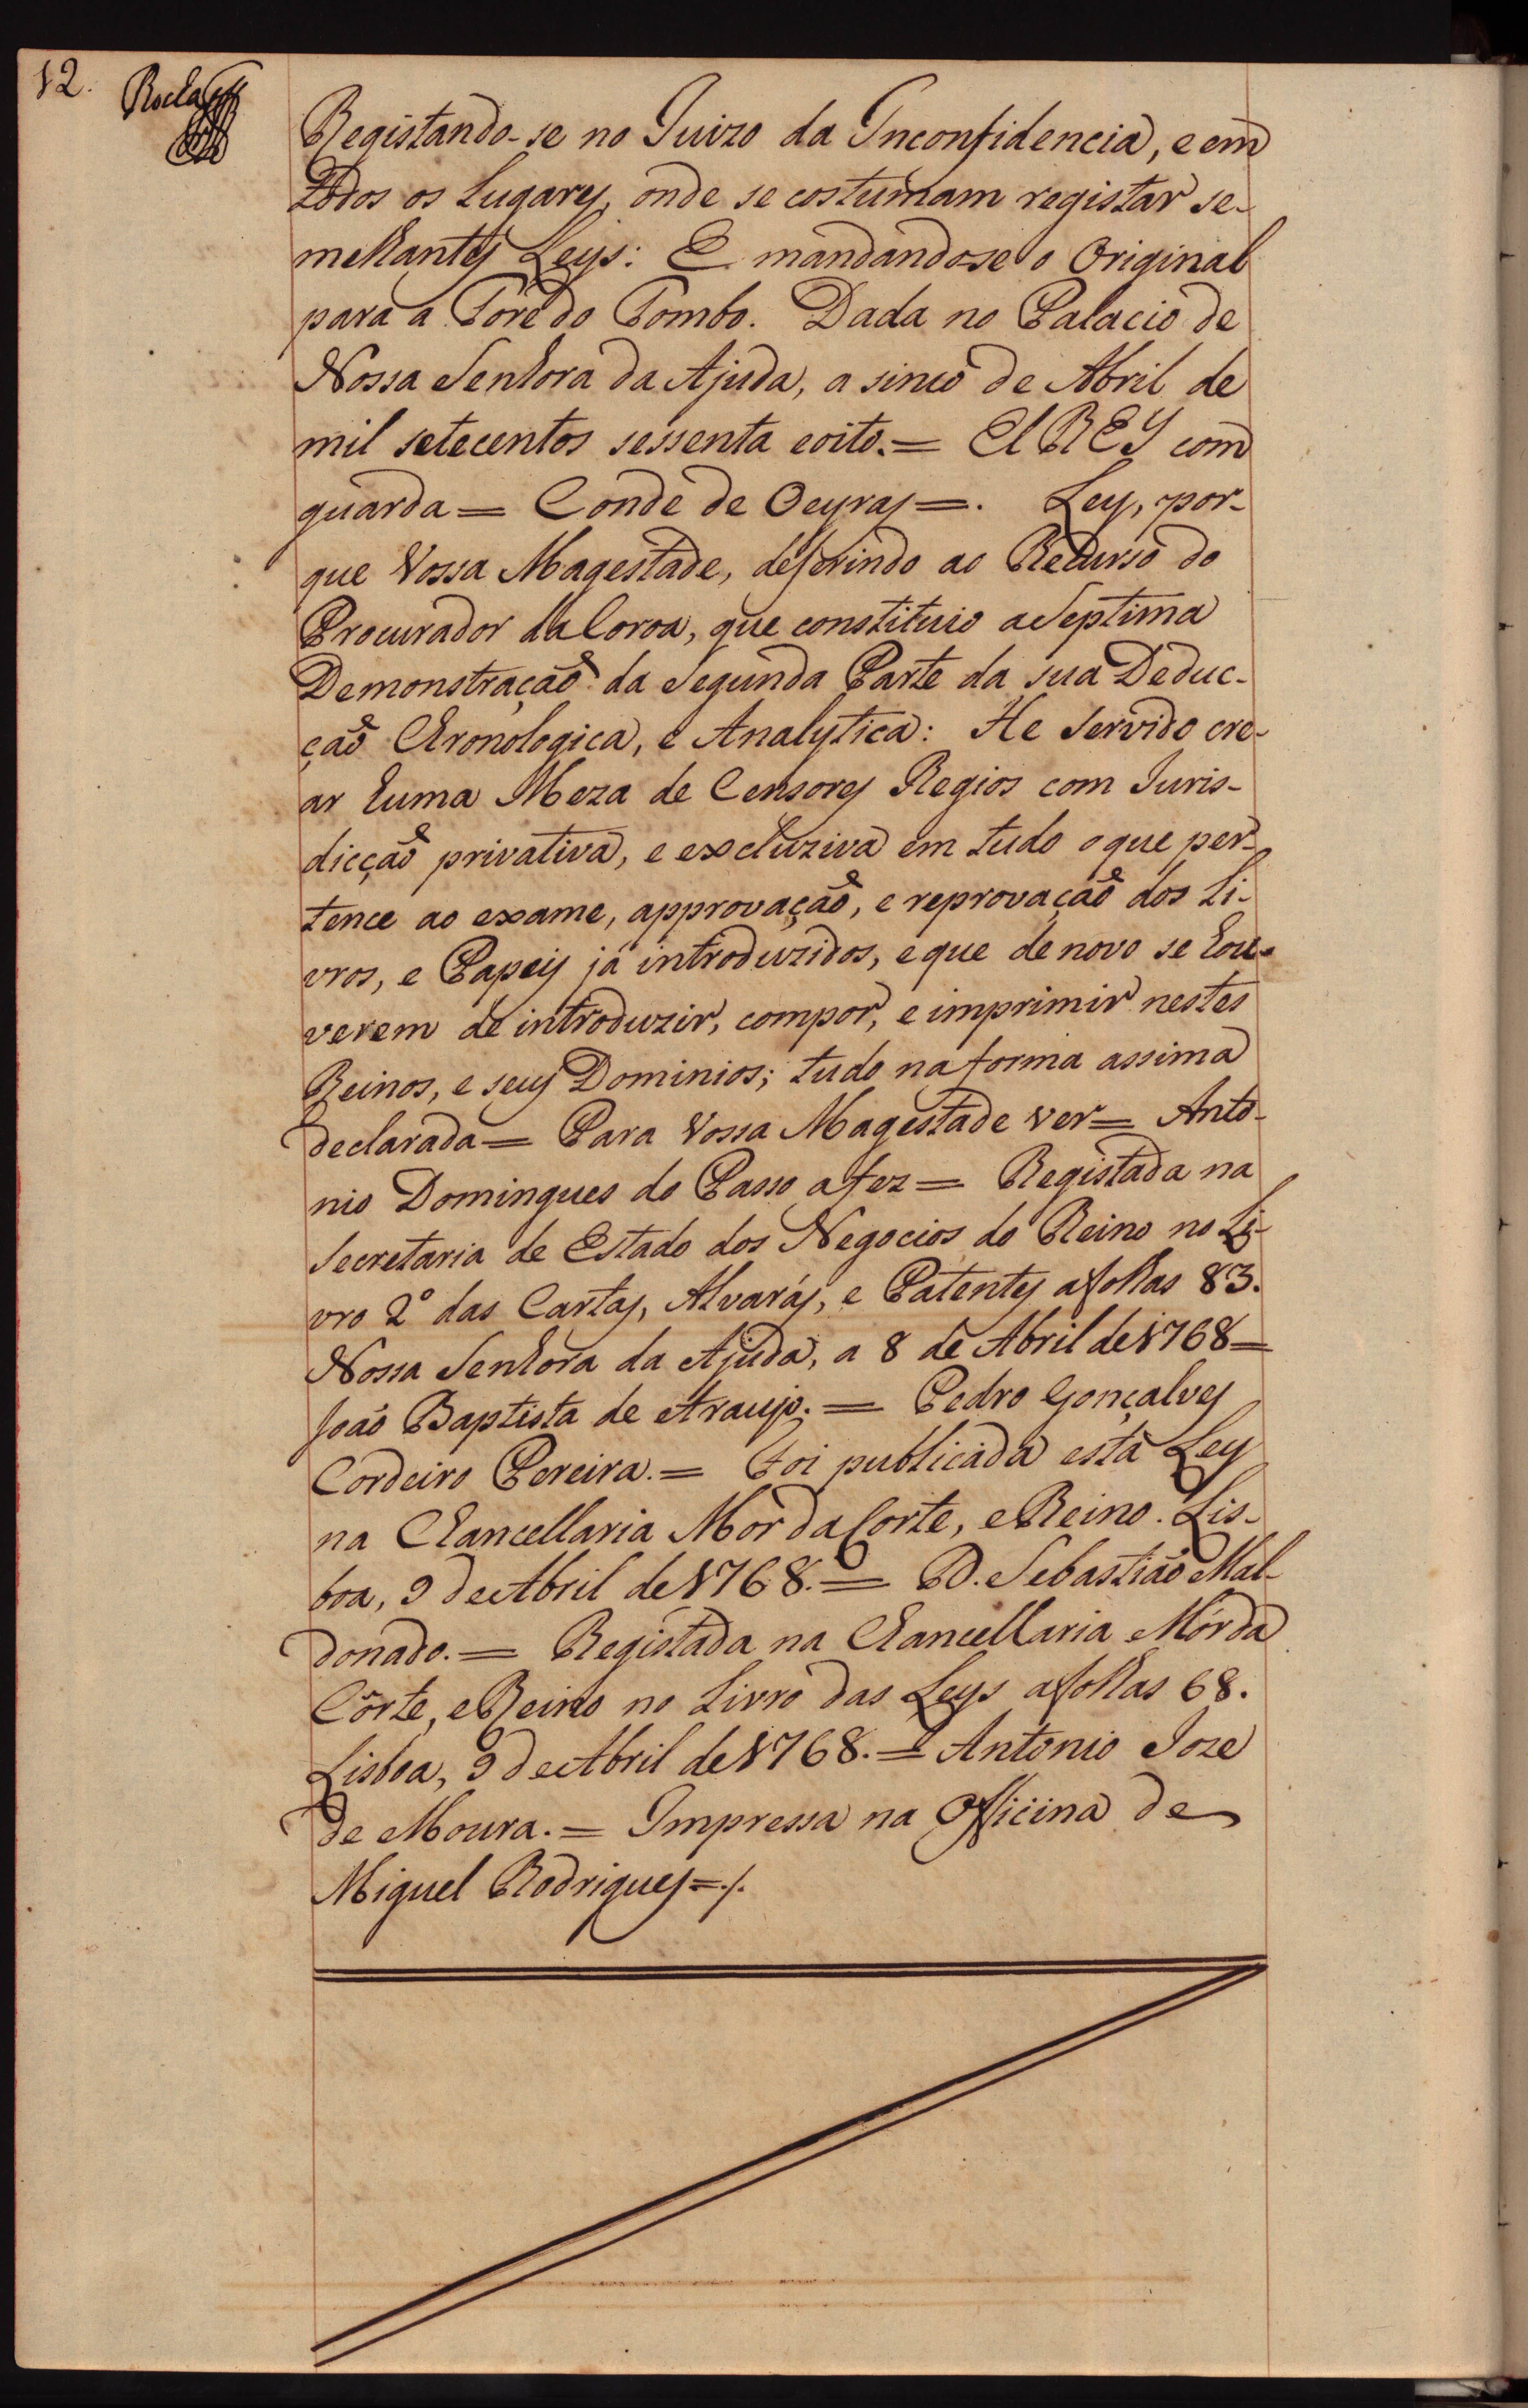 12.
Rocha
Registando-se no Juizo da Inconfidencia, e em
todos os Lugares, onde se costumam registar se-
melhantes Leys: E mandando-se o Original
para a Torre do Tombo. Dada no Palacio de
Nossa Senhora da Ajuda, a sinco de Abril de
mil setecentos sessenta e oito.= El REY com
guarda = Conde de Oeyras =. Ley, por-
que Vossa Magestade, deferindo ao Recurso do
Procurador da Coroa, que constituio a Septima
Demonstração da Segunda Parte da sua Deduc-
ção Chronologica, e Analytica: He Servido cre-
ar huma Meza de Censores Regios com Juris-
dicção privativa, e excluziva em tudo o que per-
tence ao exame, approvação, e reprovação dos Li-
vros, e Papeis já introduzidos, e que de novo se hou-
verem de introduzir, compor, e imprimir nestes
Reinos, e seus Dominios; tudo na forma assima
declarada = Para Vossa Magestade ver = Anto-
nio Domingues do Passo a fez = Registada na
Secretaria de Estado dos Negocios do Reino no Li-
vro 2º das Cartas, Alvarás, e Patentes a folhas 83.
Nossa Senhora da Ajuda, a 8 de Abril de 1768 =
João Baptista de Araujo. = Pedro Gonçalves
Cordeiro Pereira. = Foi publicada esta Ley
na Chancellaria Mór da Corte, e Reino. Lis-
boa, 9 de Abril de 1768. = D. Sebastião Mal-
donado. = Registada na Chancellaria Mór da
Côrte, e Reino no Livro das Leys a folhas 68.
Lisboa, 9 de Abril de 1768. = Antonio Joze
de Moura. = Impressa na Officina de
Miguel Rodrigues = ./.